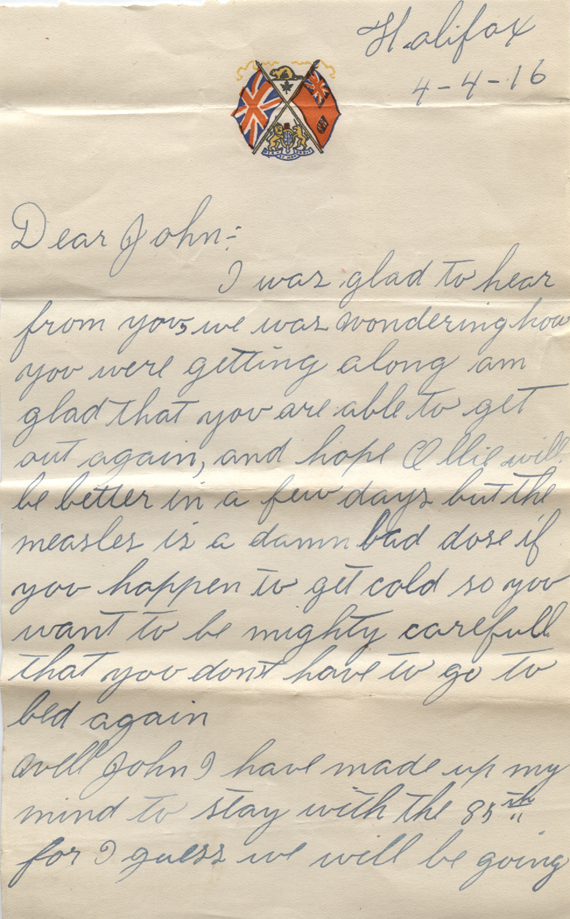 Halifax
4-4-16
Dear John:-
I was glad to hear
from you, we was wondering how
you were getting along am
glad that you are able to get
out again, and hope Ollie will
be better in a few days but the
measles is a damn bad dose if
you happen to get cold so you
want to be mighty carefull
that you dont have to go to
bed again
Well John I have made up my
mind to stay with the 85th
for I guess we will be going